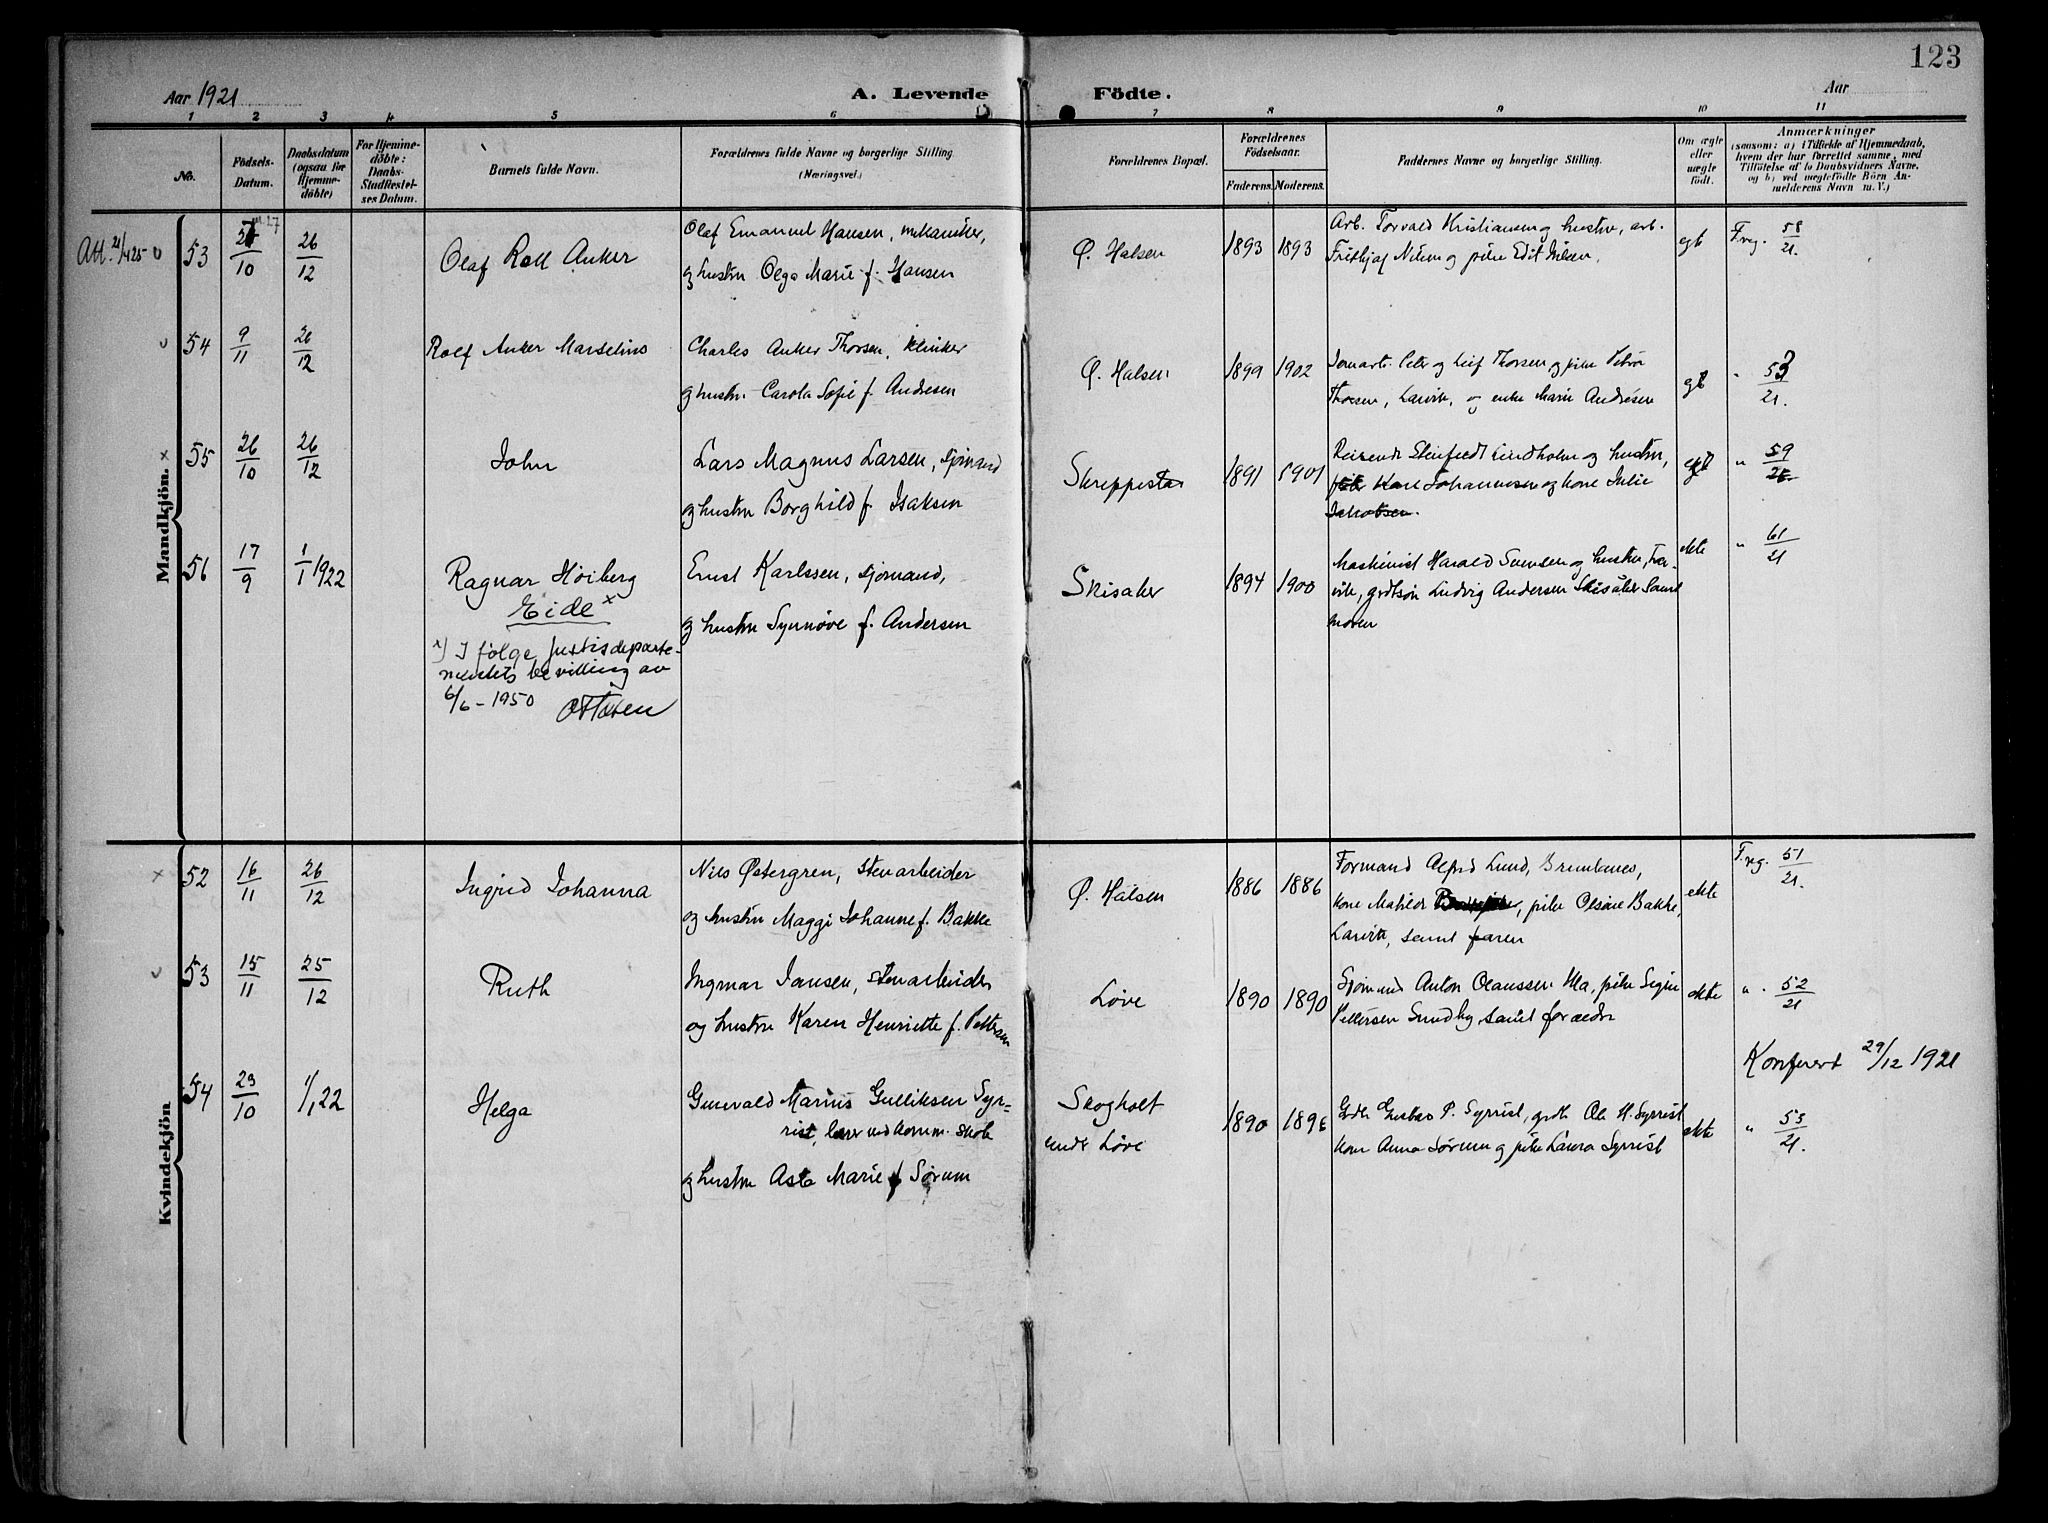 123
Aar 1921
A. Levende
Födte.
Aar
1 2 3 4 5 6 7 8 9 10 11
No.
Födsels-
Datum.
Daabsdatum
(ogsaa for
Hjemme-
döbte)
For Hjemme-
döbte:
Daabs-
Stadfæstel-
ses Datum.
Barnets fulde Navn.
Forældrenes fulde Navne og borgerlige Stilling.
(Næringsvei.)
Forældrenes Bopæl.
Forældrenes
Födselsaar.
Faderens. Moderens.
Faddernes Navne og borgerlige Stilling.
Om ægte
eller
uægte
födt.
Anmærkninger
(saasom: a) i Tilfælde af Hjemmedaab,
hvem der har forrettet samme, med
Tilföielse af to Daabsvidners Navne,
og b) ved uægtefödte Börn An-
melderens Navn m. V.)
Mandkjön.
Att. 21/4 25
53
10
26/12
Olaf Roll Anker
Olaf Emanuel Hansen, mekaniker,
og hustru Olga Marie f. Hansen
Ø. Halsen
1893 1893
Arb. Torvald Kristiansen og hustru, arb.
Frithjof Nilsen og pike Edit Nilsen.
egt
F.reg. 58/21.
54
9/11
26/12
Rolf Anker Marselius
Charles Anker Thorsen, klinker
og hustru Carola Sofie f. Andresen
Ø. Halsen
1899 1902
Jernarb. Peter og Leif Thorsen og pike Petra
Thorsen, Larvik, og enke Marie Andresen
egt
" 53/21.
55
26/10
26/12
John
Lars Magnus Larsen, sjömand
og hustru Borghild f. Isaksen
Skreppestad
1891 1901
Reisende Steinfeldt Lindholm og hustru,
Johannesen og kone Julie
Jakobsen.
egt
" 59/21
56
17/9
1/1 1922
Ragnar Höiberg
Eide x
x) I følge Justisdeparte-
mentets bevilling av
6/6 - 1950 Ottosen
Ernst Karlssen, sjömand,
og hustru Synnøve f. Andersen
Skisaker
1894 1900
Maskinist Harald Svensen og hustru,
grdtsön Ludvig Andersen Skisaker samt
moren
ekte
" 61/21
Kvindekjön
52
16/11
26/12
Ingrid Johanna
Nils Østergren, stenarbeider
og hustru Maggi Johanne f. Bakke
Ø. Halsen
1886 1886
Formand Alfred Lund,
kone Matilde pike Olsine Bakke,
Larvik, samt faren
ekte
F.reg. 51/21.
53
15/11
25/12
Ruth
Ingmar Jansen, stenarbeider
og hustru Karen Henriette f. Pettersen
Løve
1890 1890
Sjömand Anton Olaussen Ula, pike Signe
Pettersen Sundby, samt forældre
ekte
" 52/21
Konferert 29/12 1921
54
23/10
1/1 22
Helga
Gunvald Marius Gulliksen Syr-
rist, lærer ved komm. skole
og hustru Asta Marie f. Sørum
Skogholt
under Løve
1890
Grdb. Gustav P. Syrrist, grdb. Ole H. Syrrist
kone Anna Sørum og pike Laura Syrrist
ekte
" 53/21.